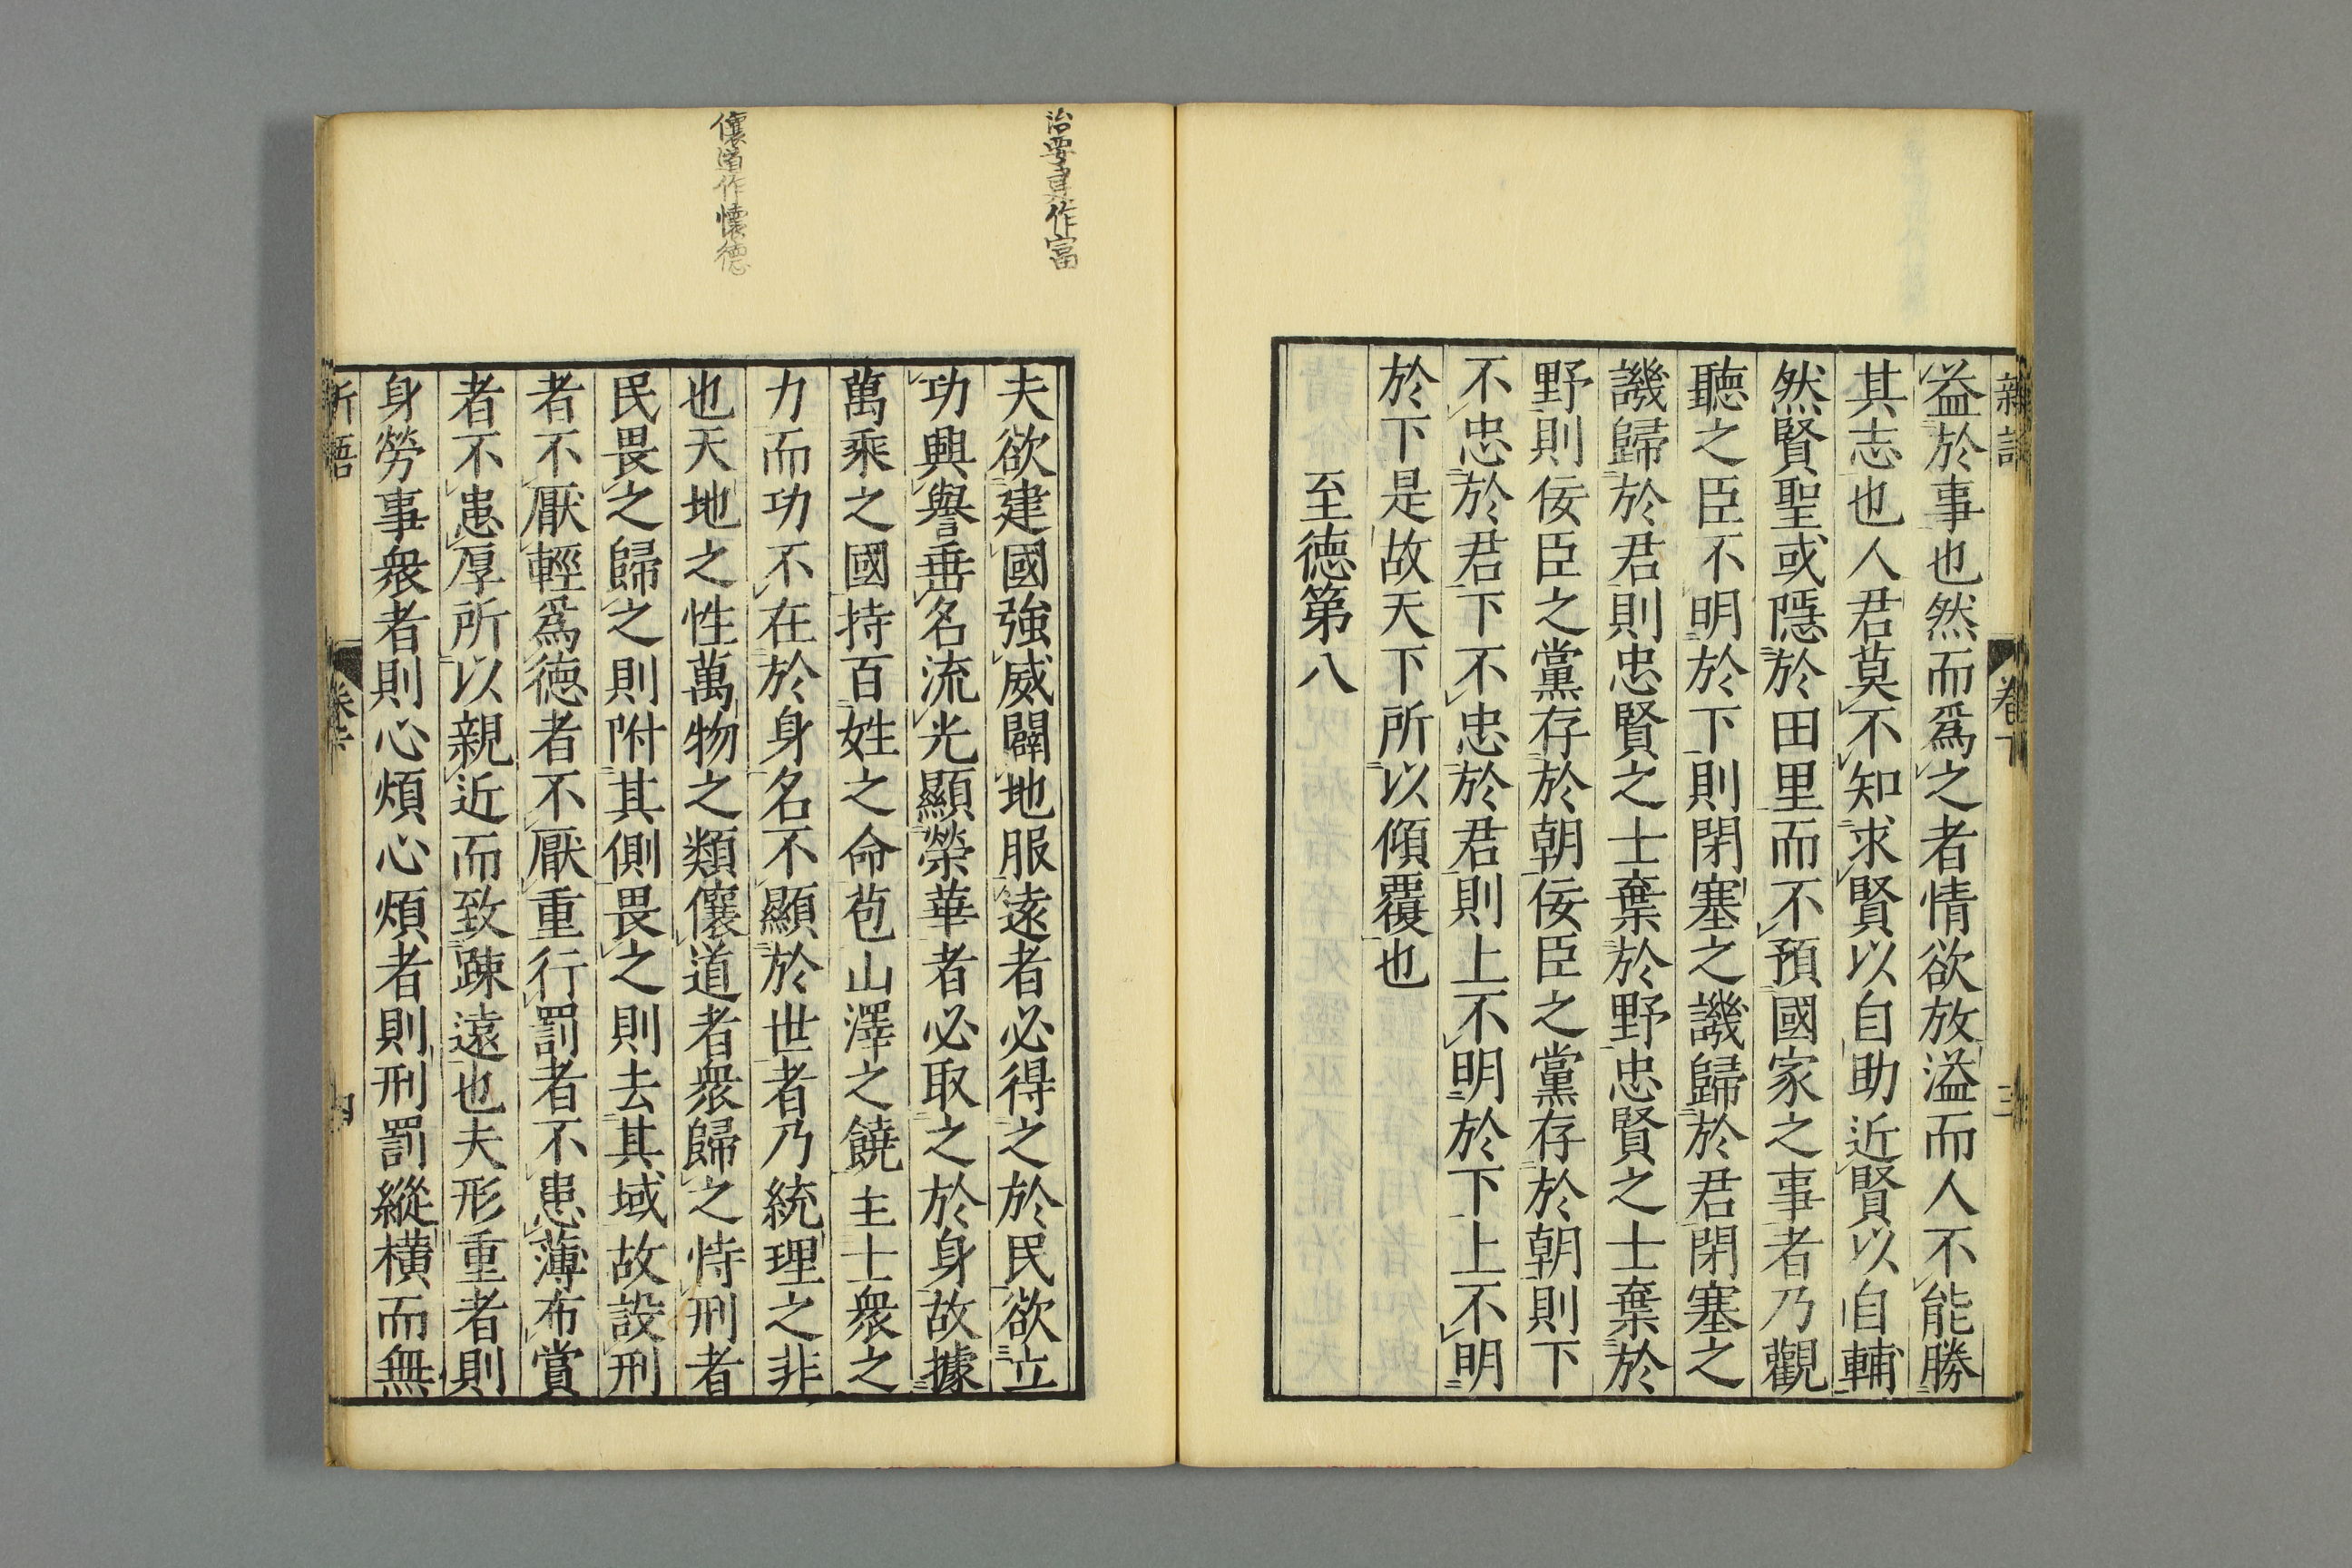 益於事也然而爲之者情欲放溢而人不能勝
其志也人君莫不知求賢以自助近賢以自輔
然賢聖或隱於田里而不預國家之事者乃觀
聽之臣不明於下則閉塞之譏歸於君閉塞之
譏歸於君則忠賢之士棄於野忠賢之士棄於
野則佞臣之黨存於朝佞臣之黨存於朝則下
不忠於君下不忠於君則上不明於下上不明
於下是故天下所以傾覆也
至德第八
治要具作富
儴道作懷德
夫欲建國強威闢地服遠者必得之於民欲立
功興譽垂名流光顯榮華者必取之於身故據
萬乘之國持百姓之命苞山澤之饒主士衆之
力而功不在於身名不顯於世者乃統理之非
也天地之性萬物之類儴道者衆歸之恃刑者
民畏之歸之則附其側畏之則去其域故設刑
者不厭輕爲德者不厭重行罰者不患薄布賞
者不患厚所以親近而致踈遠也夫形重者則
身勞事衆者則心煩心煩者則刑罰縱橫而無
卷下
四